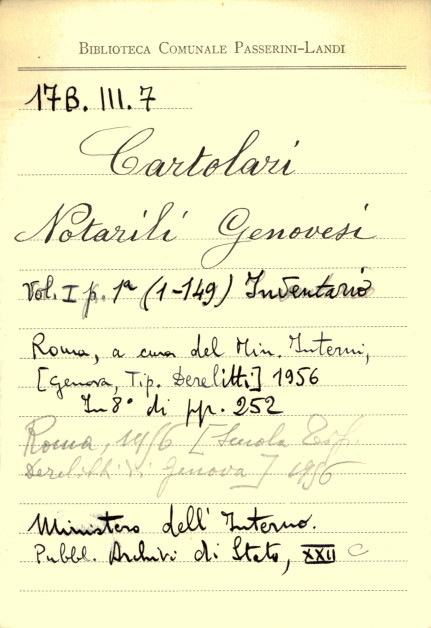 BIBLIOTECA COMUNALE PASSERINI-LANDI
17B. III. 7
Cartolari
Notarili Genovesi
Vol. I p. 1ª (1-149) Inventario
Roma, a cura del Min. Interni,
[Genova, Tip. Derelitti] 1956
In 8° di pp. 252
Roma, 1956 [Scuola Tip.
Derelitti di Genova] 1956
Ministero dell'Interno.
Pubbl. Archivi di Stato, XXII C